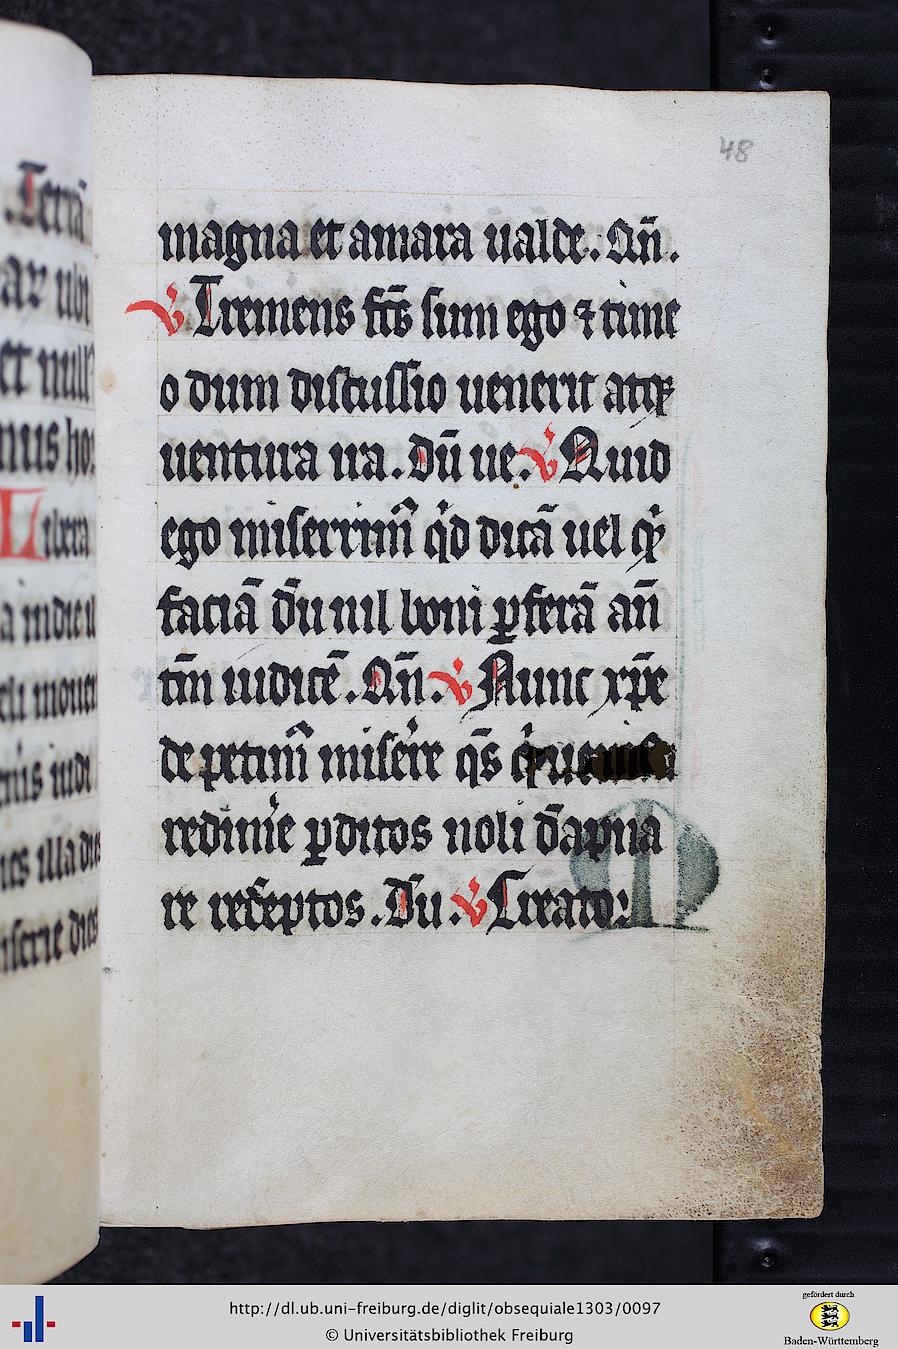 48
magna et amara ualde. Qn̄.
v̇ Tremens fc̄s sum ego ⁊ time
o dum discussio uenerit atqꝫ
uentura ira. Dū ue. v̇ Quid
ego miserrimꝰ qͥd dicā uel qͥꝫ
faciā dū nil boni ꝑferā an̄
tm̄ iudicē. Qn̄. v̇ Nunc xp̄e
te petimꝰ miserere qs̄
redimͥe ꝑditos noli dāpna
re redēptos. Dū. v̇ Creatoꝛ
.Terrā
ubi
et null
Libera
illa dies
http://dl.ub.uni-freiburg.de/diglit/obsequiale1303/0097
© Universitätsbibliothek Freiburg
gefördert durch
Baden-Württemberg